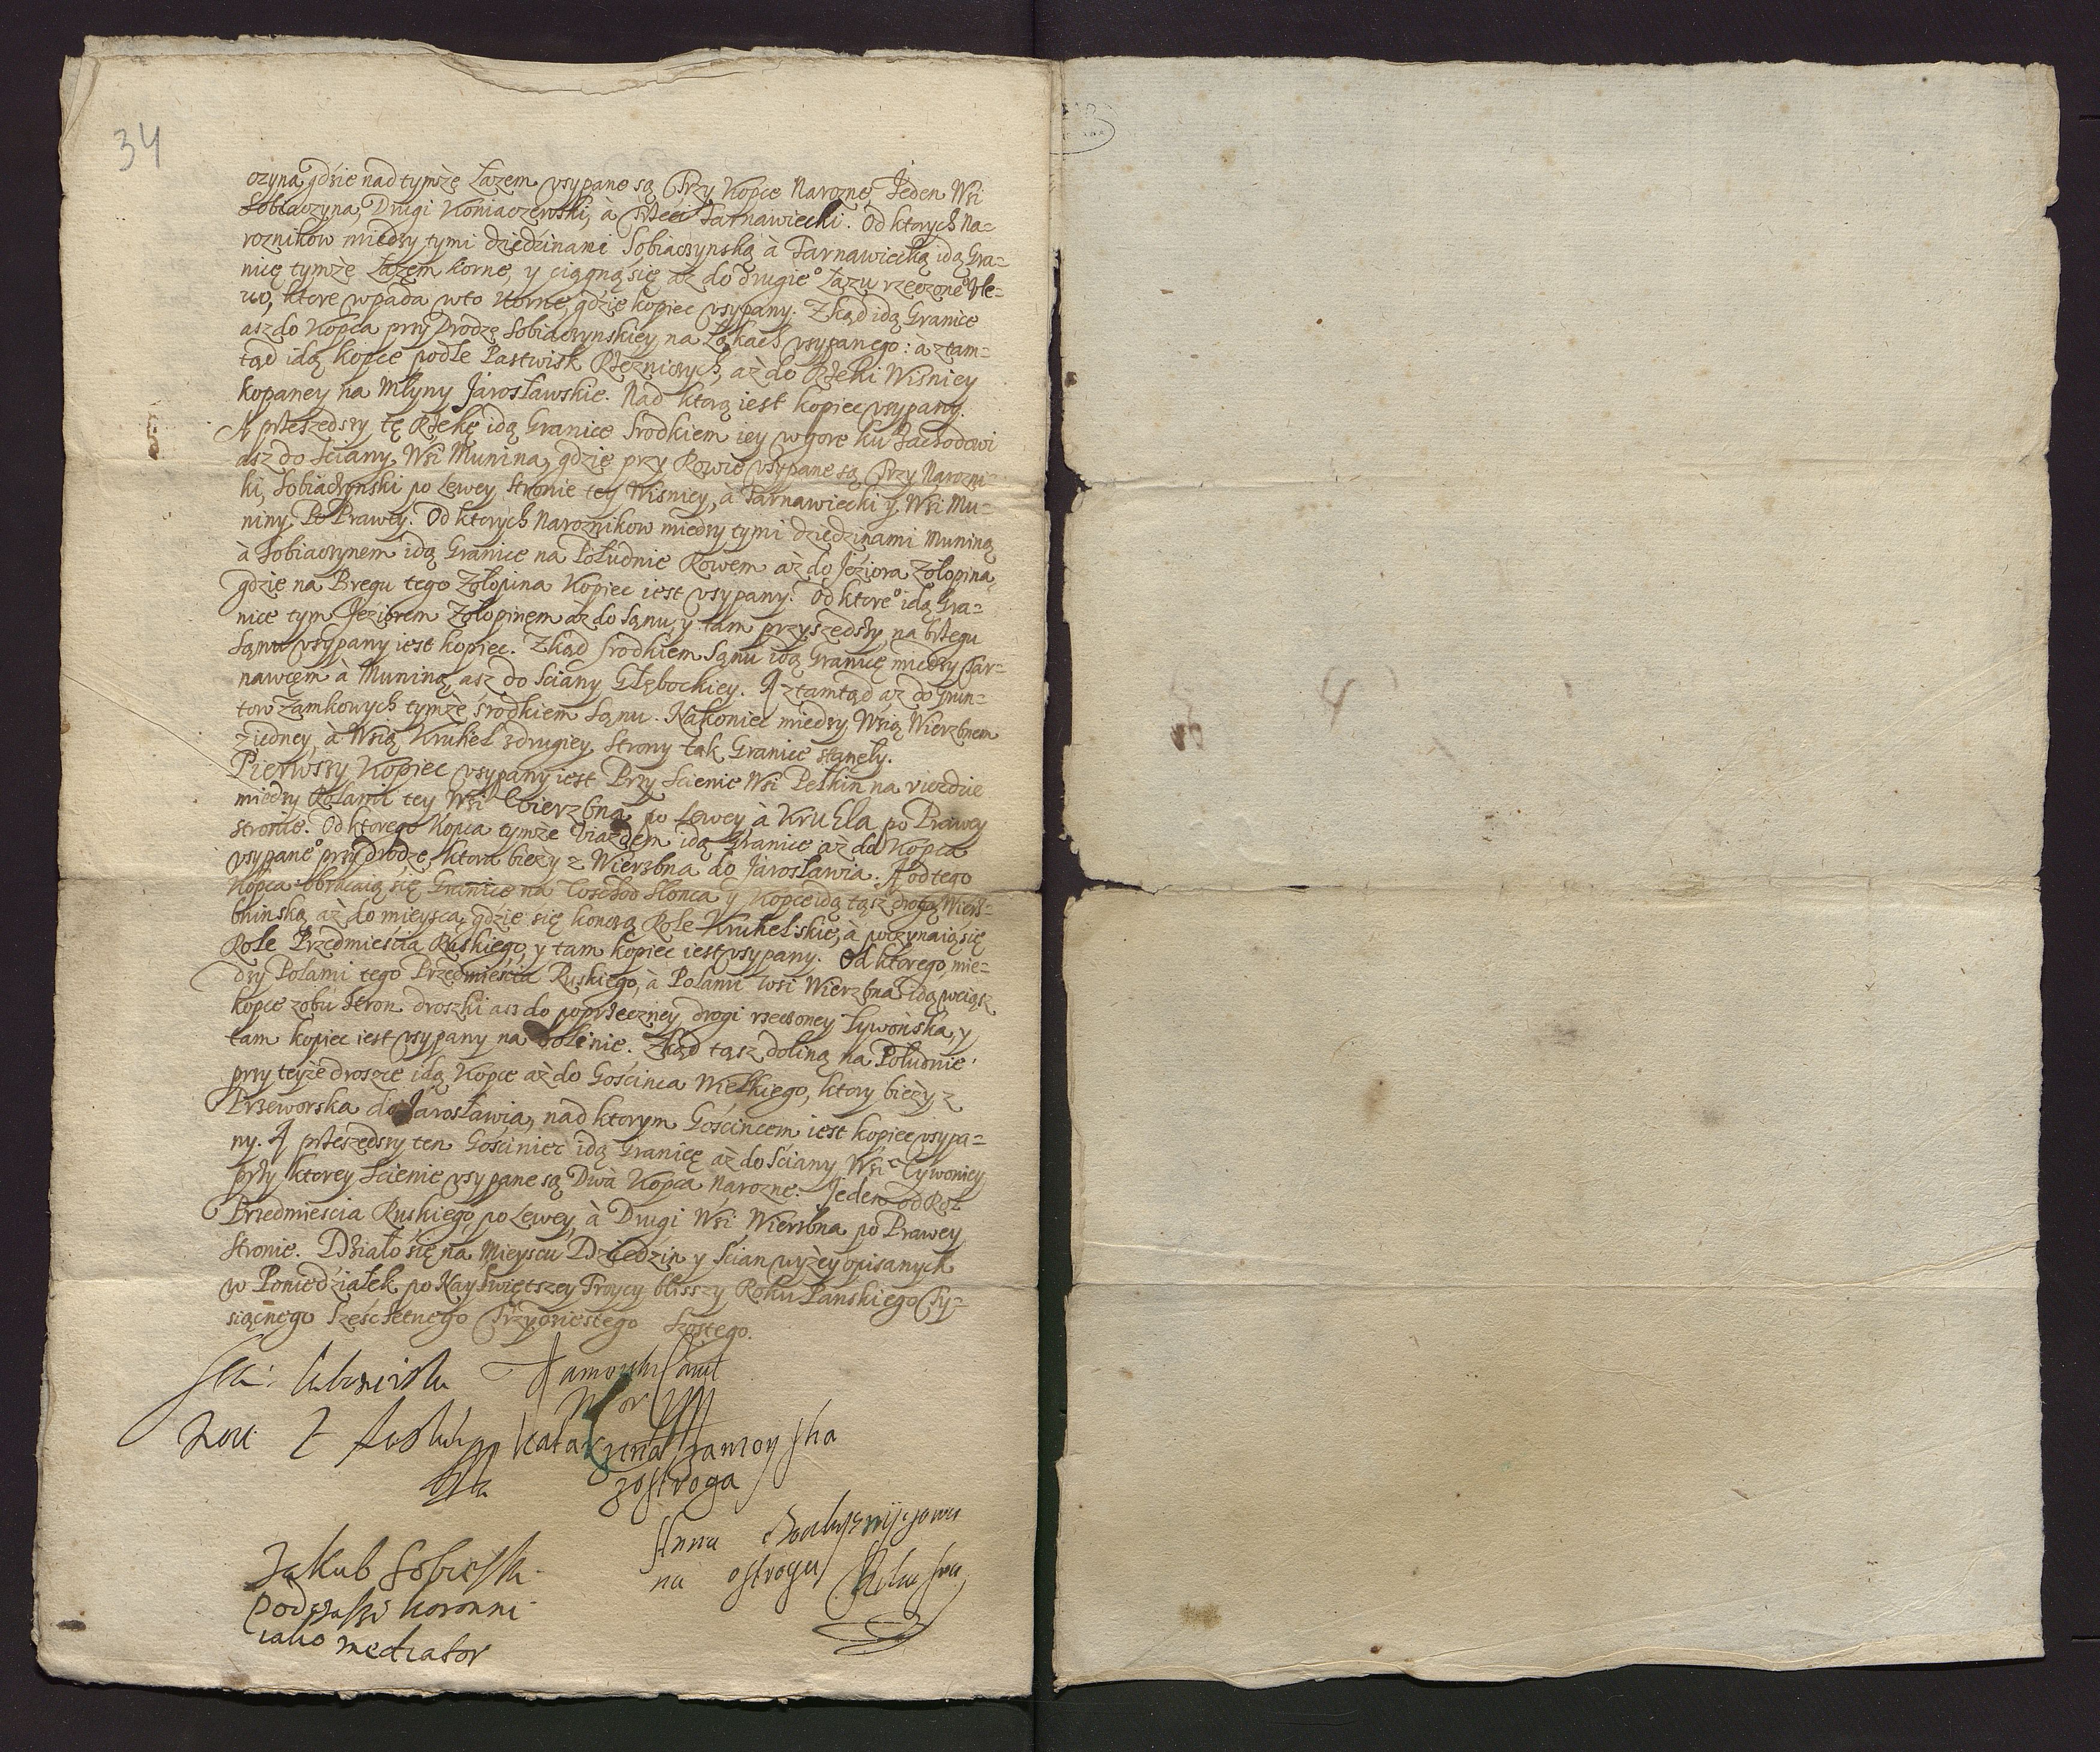 34
czyna, gdzie nad tymże Łazem vsypane są Trzy Kopce Narozne, Jeden Wsi
Sobiaczyna, Drugi Koniaczewski, à trzeci Tarnawiecki. Od ktorych Na=
roznikow miedzy tymi dziedzinami Sobiaczynską à Tarnawiecką idą Gra=
nice tymże Łazem korne, y ciągną się aż do drugie° Łazu rzeczone°
ktore wpada w to korne, gdzie kopiec vsypany. Zkąd idą Granice
asz do Kopca przy Drodze Sobiaczynskiey na Łąkach vsypanego: à ztam=
tąd idą kopce podle Pastwisk Rzezniczych, aż do Rzeki Wiśniey
kopaney na Młyny Jarosławskie. Nad ktorą iest kopiec vsypany.
A przeszedszy tę Rzekę idą Granice Srodkiem iey w gore ku Zachodowi
asz do Sciany Wsi Munina, gdzie przy Rowie vsypane są Trzy Narozni=
ki, Sobiaczynski po Lewey Stronie tey Wiśniey, à Tarnawiecki y Wsi Mu=
niny Po Prawey. Od ktorych Naroznikow miedzy tymi dziedzinami Muniną
à Sobiaczynem idą Granice na Południe Rowem aż do Jeziora Zołopina,
gdzie na Bregu tego Zołopina Kopiec iest vsypany. Od ktore° idą Gra=
nice tym Jeziorem Zołopinem aż do Sanu, y tam przyszedszy na brzegu
Sanu vsypany iest kopiec. Zkąd srodkiem Sanu idą Granice miedzy Tar=
nawcem à Muniną, asz do Sciany Głębockiey. A ztamtąd aż do Grun=
tow Zamkowych tymże środkiem Sanu. Nakoniec miedzy Wsią Wierzbnem
z iedney, à Wsią Kruhel z drugiey Strony tak Granice stanęły.
Pierwszy Kopiec vsypany iest Przy Scienie Wsi Pełkin na vieździe
miedzy Rolami tey Wsi Wierzbna po Lewey à Kruhla po Prawey
Stronie. Od ktorego Kopca tymże Viazdem idą Granice aż do Kopca
vsypane° przy drodze, ktora bieży z Wierzbna do Jarosławia. A od tego
Kopca obracaią się Granice na Wschod Słonca y Kopce idą tąsz drogą Wierz=
bninską aż do mieysca, gdzie się konczą Role Kruhelskie, à poczynaią się
Role Przedmieścia Ruskiego, y tam kopiec iest vsypany. Od ktorego mie=
dzy Polami tego Przedmieścia Ruskiego, à Polami Wsi Wierzbna idą wciąsz
kopce z obu stron droszki asz do poprzeczney drogi rzeczoney Tywońska, y
tam kopiec iest vsypany na dolinie. Zkąd tąsz doliną na Południe
przy teyże droszce idą Kopce aż do Gościnca Wielkiego, ktory bieży z
Przeworska do Jarosławia, nad ktorym Gościncem iest kopiec vsypa=
ny. A przeszedszy ten Gościniec idą Granice aż do Sciany Wsi Tywoniey
przy ktorey Scienie vsypane są Dwà Kopca Narozne. Jeden od Rol
Przedmiescia Ruskiego po Lewey, à Drugi Wsi Wierzbna po Prawey
Stronie. Działo się na Mieyscu Dziedzin y Scian wyżey opisanych
w Poniedziałek po Nayświętszey Troycy blisszy Roku Panskiego Ty=
siącnego Sześćsetnego Trzydziestego Szostego.
Zamoyski
Katarzyna Zamoyska
z ostroga
Anna Chodkiewiczowa
na ostrogu
Jakub Sobieski
Podczaszi koronni
iako mediator